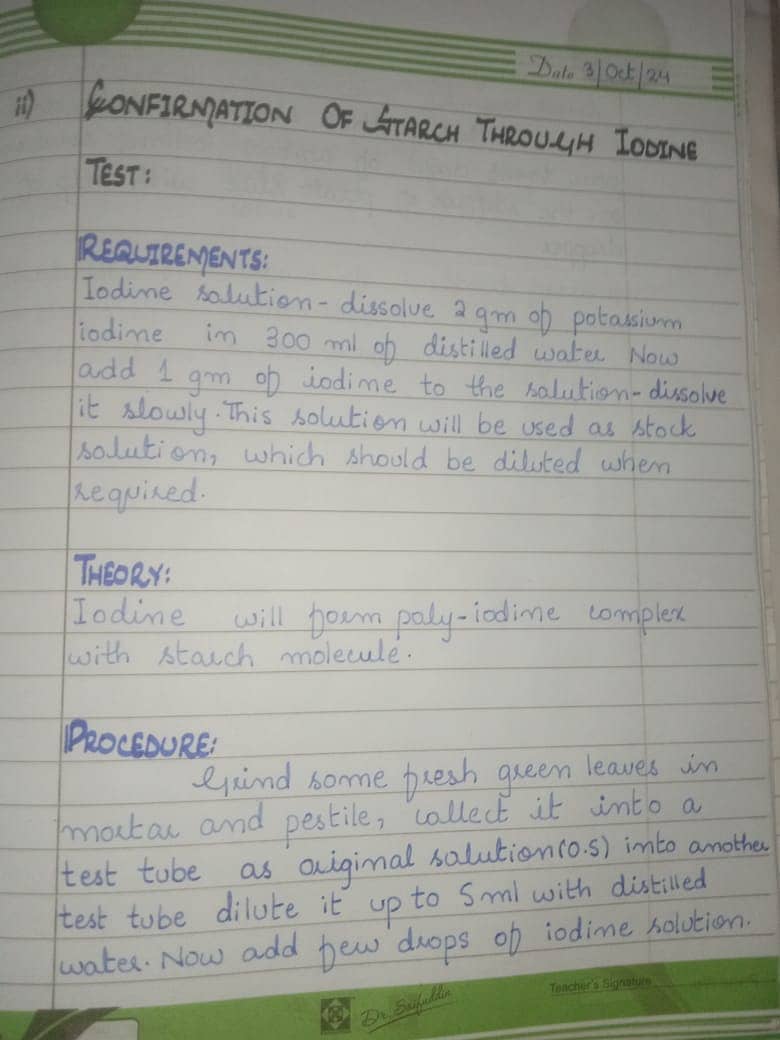 Date 3/Oct/24
ii) CONFIRMATION OF STARCH THROUGH IODINE
TEST:
REQUIREMENTS:
Iodine solution - dissolve 2 gm of potassium
iodine in 300 ml of distilled water Now
add 1 gm of iodine to the solution - dissolve
it slowly. This solution will be used as stock
solution, which should be diluted when
required.
THEORY:
Iodine will form poly-iodine complex
with starch molecule.
PROCEDURE:
Grind some fresh green leaves in
mortar and pestile, collect it into a
test tube as original solution (O.S) into another
test tube dilute it up to 5 ml with distilled
water. Now add few drops of iodine solution.
Teacher's Signature
Dr. Saifuddin